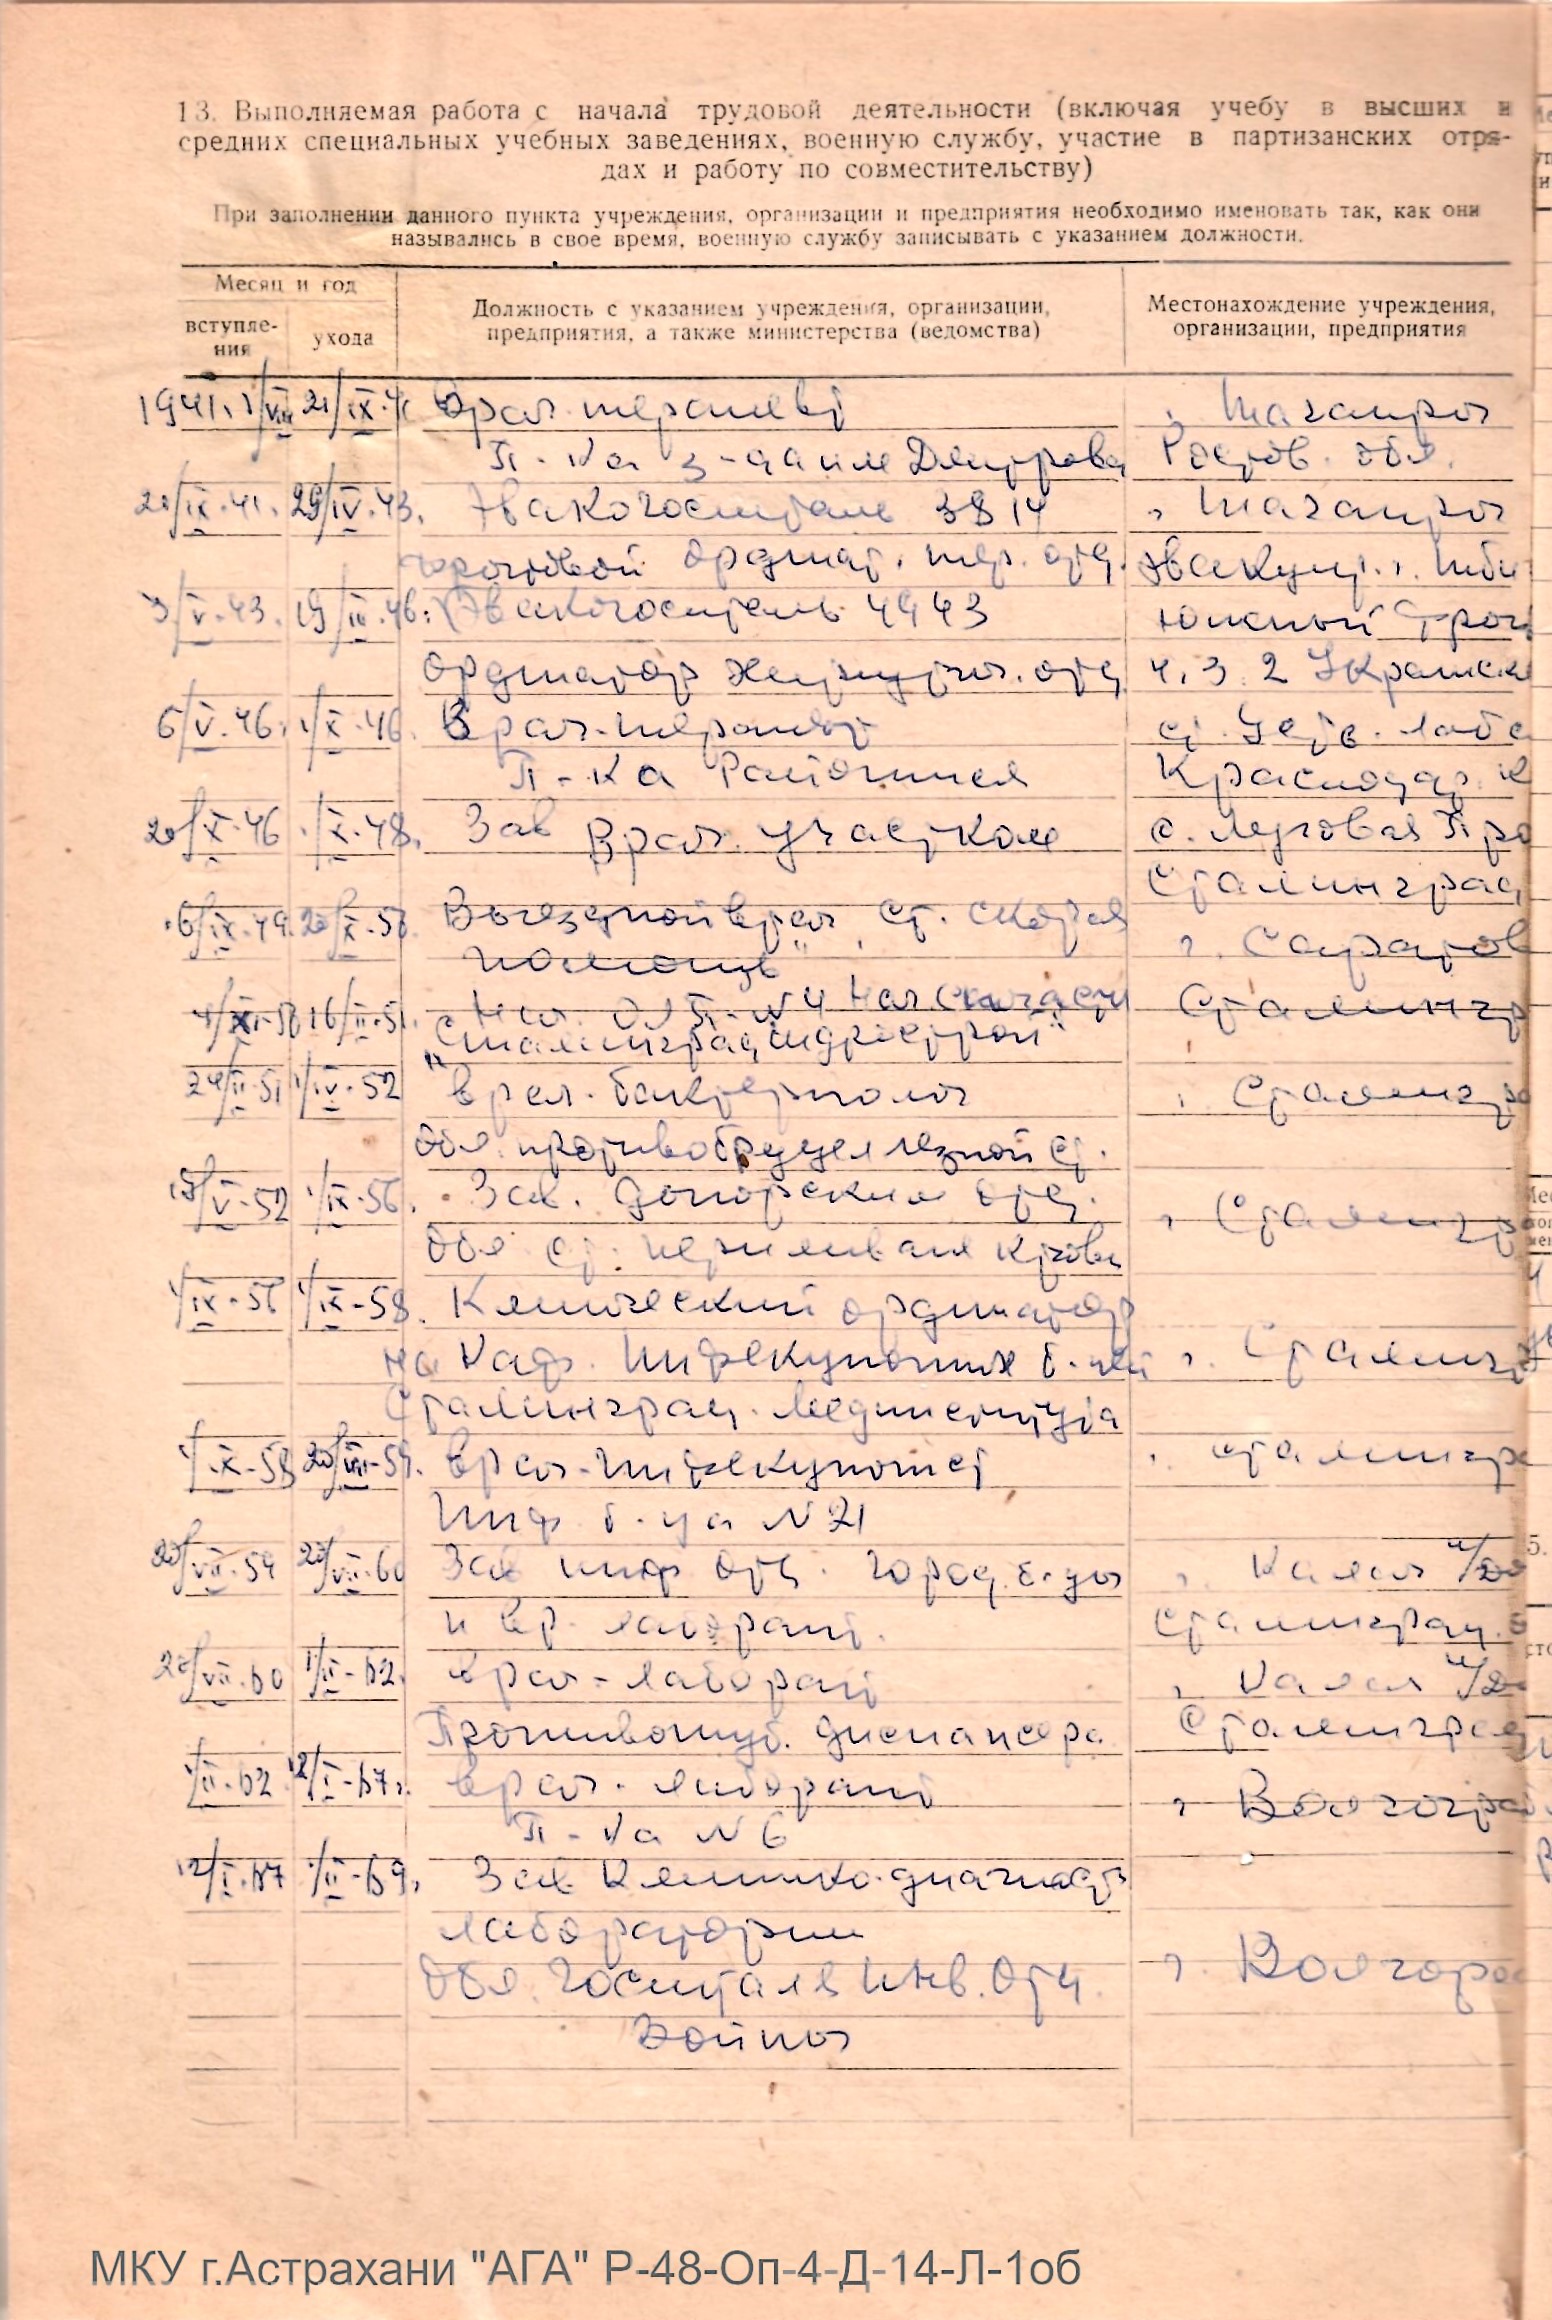 13. Выполняемая работа с начала трудовой деятельности (включая учебу в высших и
средних специальных учебных заведениях, военную службу, участие в партизанских отря-
дах и работу по совместительству)
При заполнении данного пункта учреждения, организации и предприятия необходимо именовать так, как они
назывались в свое время, военную службу записывать с указанием должности.
Месяц и год
вступле-
ния
ухода
Должность с указанием учреждения, организации,
предприятия, а также министерства (ведомства)
Местонахождение учреждения,
организации, предприятия
1941. 1/VIII 21/IX-41 Врач-терапевт г. Таганрог
П-ка з-да им Димитрова Ростов. обл.
21/IX-41. 29/IV-43. Эвакогоспиталь 3814 г. Таганрог
фронтовой ордмат. тер. отд. эвакуир. г.
3/V-43. 19/III-46. Эвакогоспиталь 4943 Южный Фрон
ординатор хирургич. отд 4, 3, 2 Украинск
6/V-46. 1/X-46. Врач-терапевт ст. Усть-Лаб
П-ка Районная Краснодар. к
20/X-46 1/X-48. Зав Врач. участком с. Луговая Про
Сталинград
6/IX-49. 20/X-50. Выездной врач ст. скорая г. Саратов
помощь
1/XI-50 16/II-51. Нач. №4 Мед сан части Сталингр
"Сталинградгидрострой"
24/II-51 1/IV-52 врач-бактериолог г. Сталингр
Обл. противобруцеллезной ст.
18/V-52 1/IX-56. Зав. донорским отд. г. Сталингр
Обл ст. переливания крови
1/IX-56 1/IX-58. Клинический ординатор
на каф. Инфекционных б-ней г. Сталингр
Сталинград. Мединститута
1/IX-58 20/VII-59. врач-инфекционист г. Сталингр
Инф б-ца N 21
20/VII-59 20/VII-60 Зав инф отд. город. б-цы г. Калач н/До
и вр. лаборант. Сталинград.
20/VII-60 1/II-62. врач-лаборант г. Калач н/До
Противотуб. диспансера Сталинград
1/II-62 12/I-67г. врач-лаборант г. Волгогра
П-ка N 6
12/I-67 1/II-69. Зав Клинико-диагност
лаборатории
Обл. Госпиталь инв. Отч. г. Волгогра
Войны
МКУ г.Астрахани "АГА" Р-48-Оп-4-Д-14-Л-1об